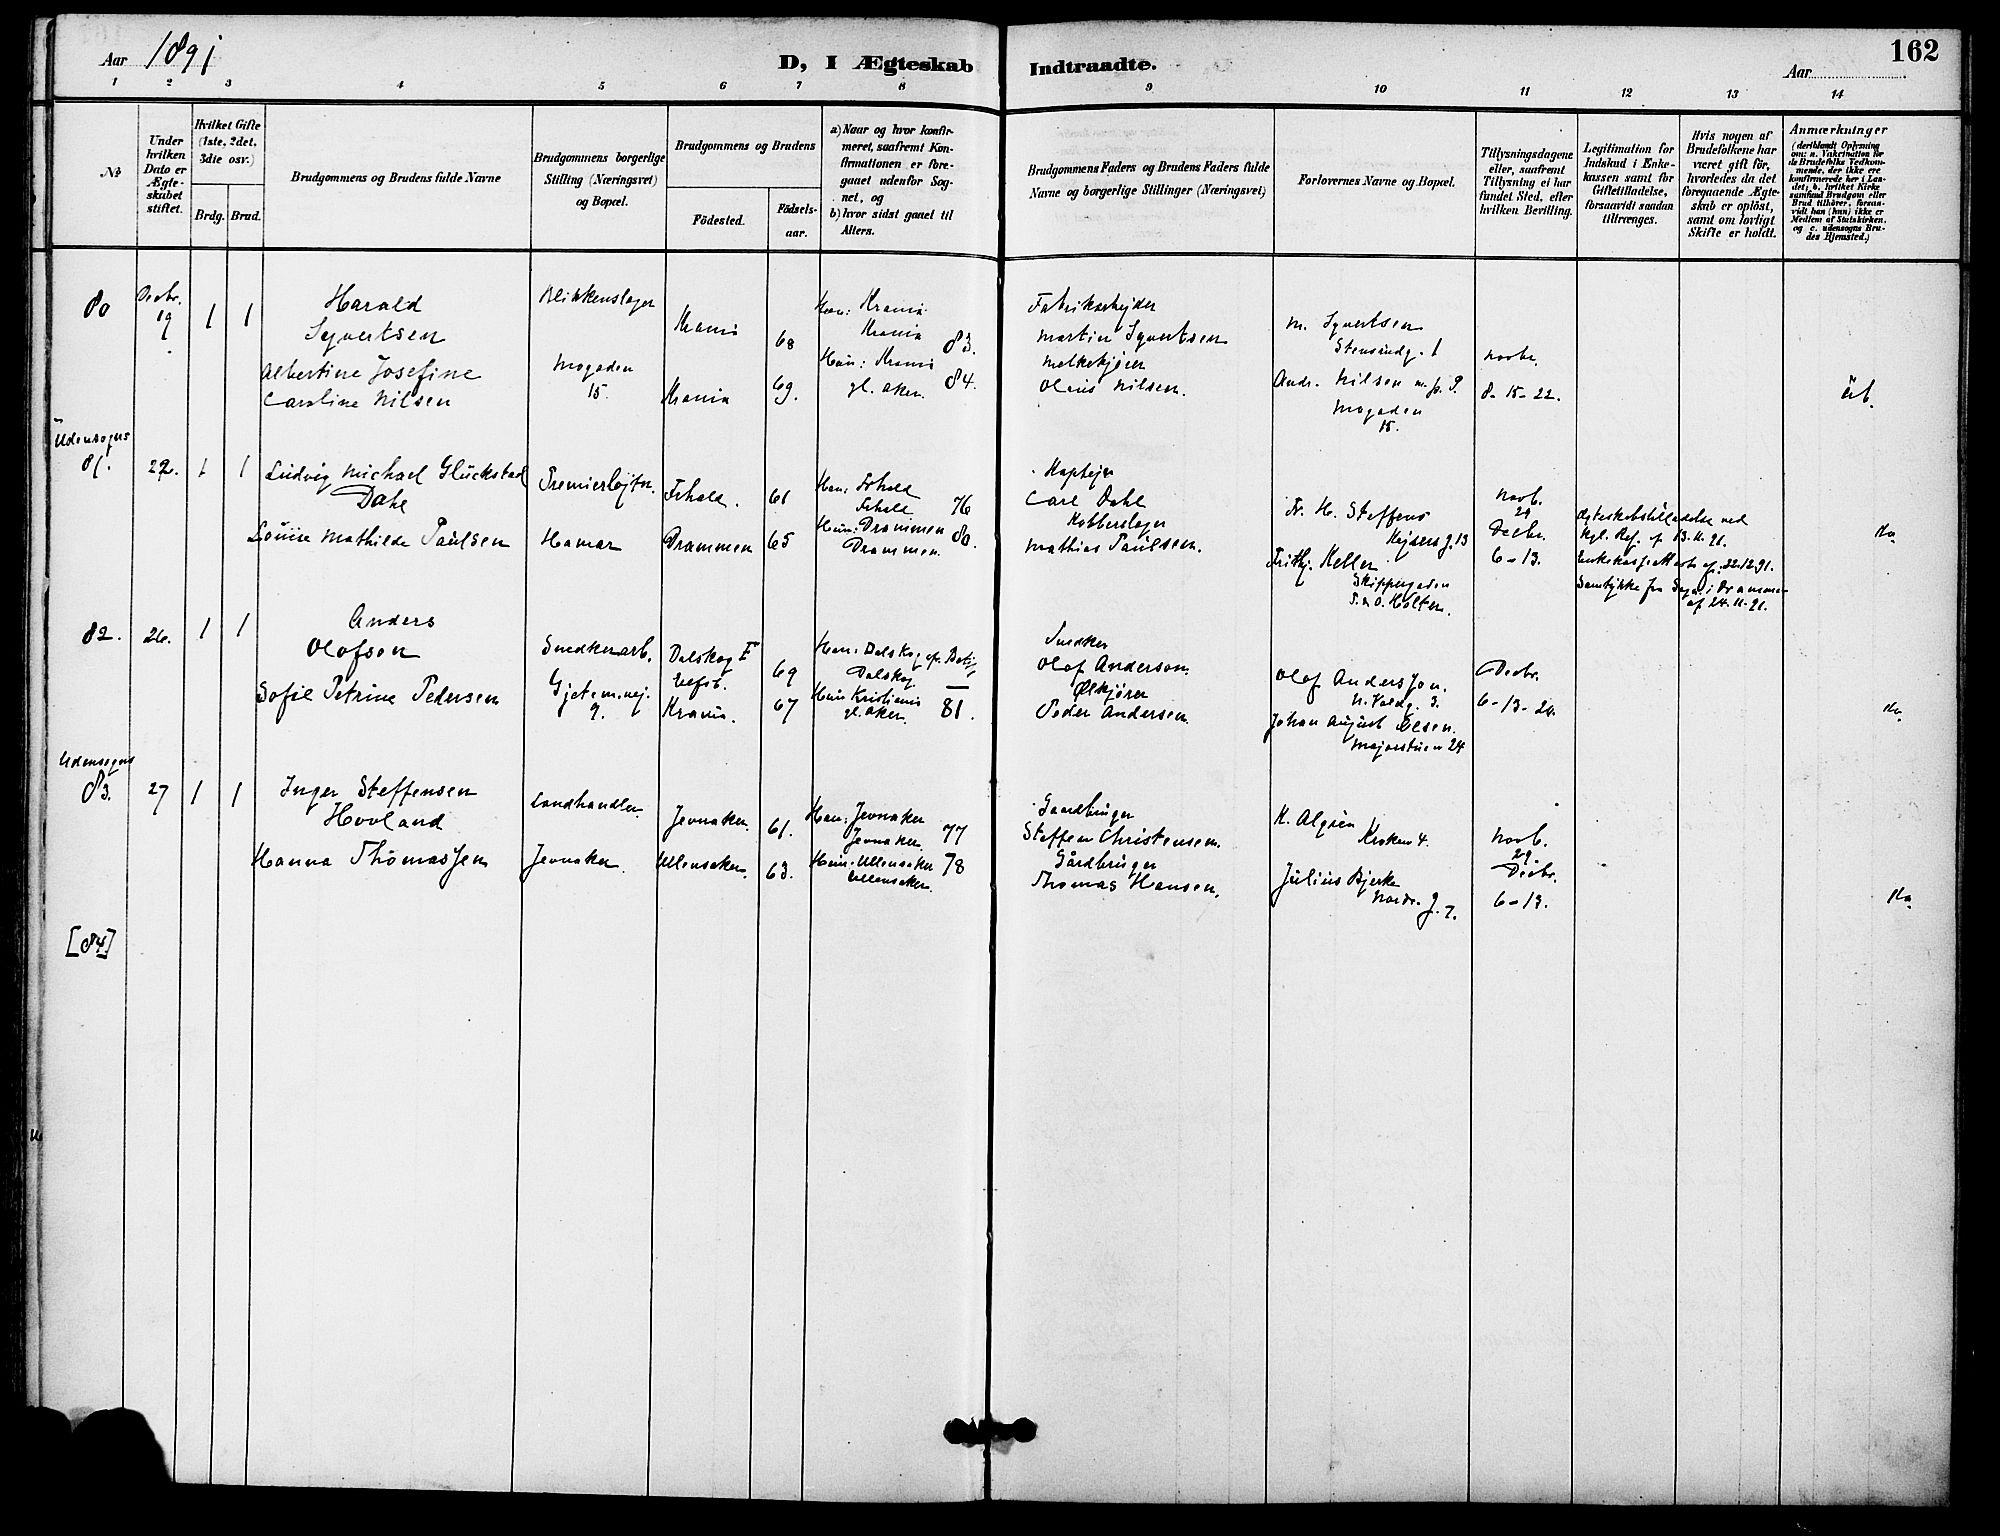 162
Aar 1891
D, I Ægteskab Indtraadte.
Aar
1 2 3 4 5 6 7 8 9 10 11 12 13 14
No
Under hvilken Dato er Ægteskabet stiftet.
Hvilket Gifte (1ste, 2det, 3die osv.)
Brdg. Brud.
Brudgommens og Brudens fulde Navne
Brudgommens borgerlige Stilling (Næringsvei) og Bopæl.
Brudgommens og Brudens
Födested.
Födsels-aar.
a) Naar og hvor konfirmeret, saafremt Konfirmationen er foregaaet udenfor Sognet, og
b) hvor sidst gaaet til Alters.
Brudgommens Faders og Brudens Faders fulde Navne og borgerlige Stillinger (Næringsvei)
Forlovernes Navne og Bopæl.
Tillysningsdagene eller, saafremt Tillysning ei har fundet Sted, efter hvilken Bevilling.
Legitimation for Indskud i Enkekassen samt for Giftetilladelse, forsaavidt saadan tiltrænges.
Hvis nogen af Brudefolkene har været gift för, hvorledes da det foregaaende Ægteskab er oplöst, samt om lovligt Skifte er holdt.
Anmærkninger
(deriblandt Oplysning om: a. Vakcination for de Brudefolks Vedkommende, der ikke ere konfirmerede her i Landet; b. hvilket Kirkesamfund Brudgom eller Brud tilhörer, forsaavidt han (hun) ikke er Medlem af Statskirken, og c. udensogns Brudes Hjemsted.)
80 Decbr. 19 1 1
Harald
Syvertsen
Blikkenslager
Krania 68
Han: Krania
Krania 83.
Fabriksarbejder
Martin Syvertsen
M. Syvertsen
Stensrudg. 1
Albertine Josefine
Caroline Nilsen
Mogaden
15.
Krania 69.
Hun: Krania
gl. Aker. 84.
Melkekjører
Olaus Nilsen.
Andr. Nilsen
Mogaden
15.
Novbr.
8-15-22.
Udensogns
81. 22. 1 1
Ludvig Michael Glückstad
Dahl
Premierløjtn.
Frhald. 61
Han: Frhald
Frhald 76
Kaptejn
Carl Dahl
Fr. H. Steffens
Kejsersg. 13
Novb.
29
Louise Mathilde Paulsen
Hamar
Drammen 65
Hun: Drammen
Drammen. 80.
Kobberslager
Mathias Paulsen.
Frithj. Keller
Skippergaden
Holten.
Decbr.
6-13.
Ægteskabstilladelse ved
Kgl. Res. af 13.11.91.
af 22.12.91.
Samtykke fra Sogn. i Drammen
af 24.11.91.
82. 26. 1 1
Anders
Olofsen
Snedkerarb.
Dalskog
Elfsb. 69
Han: Dalskog
Dalskog
Snedker
Olof Anderson
Olof Andersson.
3.
Decbr.
Sofie Petrine Pedersen
9.
Krania. 67
Hun: Kristiania
gl. Aker. 81.
Ølkjører
Peder Andersen
Johan August Olsen.
Majorstuen 24
6-13-20.
Udensogns
83. 27 1 1
Inger Steffensen
Hovland
Landhandler
Jevnaker. 61.
Han: Jevnaker
Jevnaker. 77
Gaardbruger
Steffen Christensen.
Kroken 4.
Novb.
29.
Hanna Thomassen
Jevnaker.
Ullensaker. 63.
Hun: Ullensaker
Ullensaker. 78
Gårdbruger
Thomas Hansen.
Julius Bjerke
Nordr. g. 7.
Decbr.
6-13.
[84]